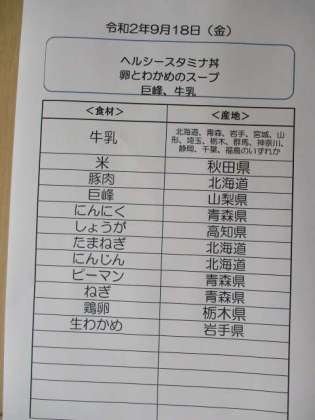 令和2年9月18日（金）
ヘルシースタミナ丼
卵とわかめのスープ
巨峰、牛乳
＜食材＞ ＜産地＞
牛乳 北海道、青森、岩手、宮城、山
形、埼玉、栃木、群馬、神奈川、
静岡、千葉、福島のいずれか
米 秋田県
豚肉 北海道
巨峰 山梨県
にんにく 青森県
しょうが 高知県
たまねぎ 北海道
にんじん 北海道
ピーマン 青森県
ねぎ 青森県
鶏卵 栃木県
生わかめ 岩手県